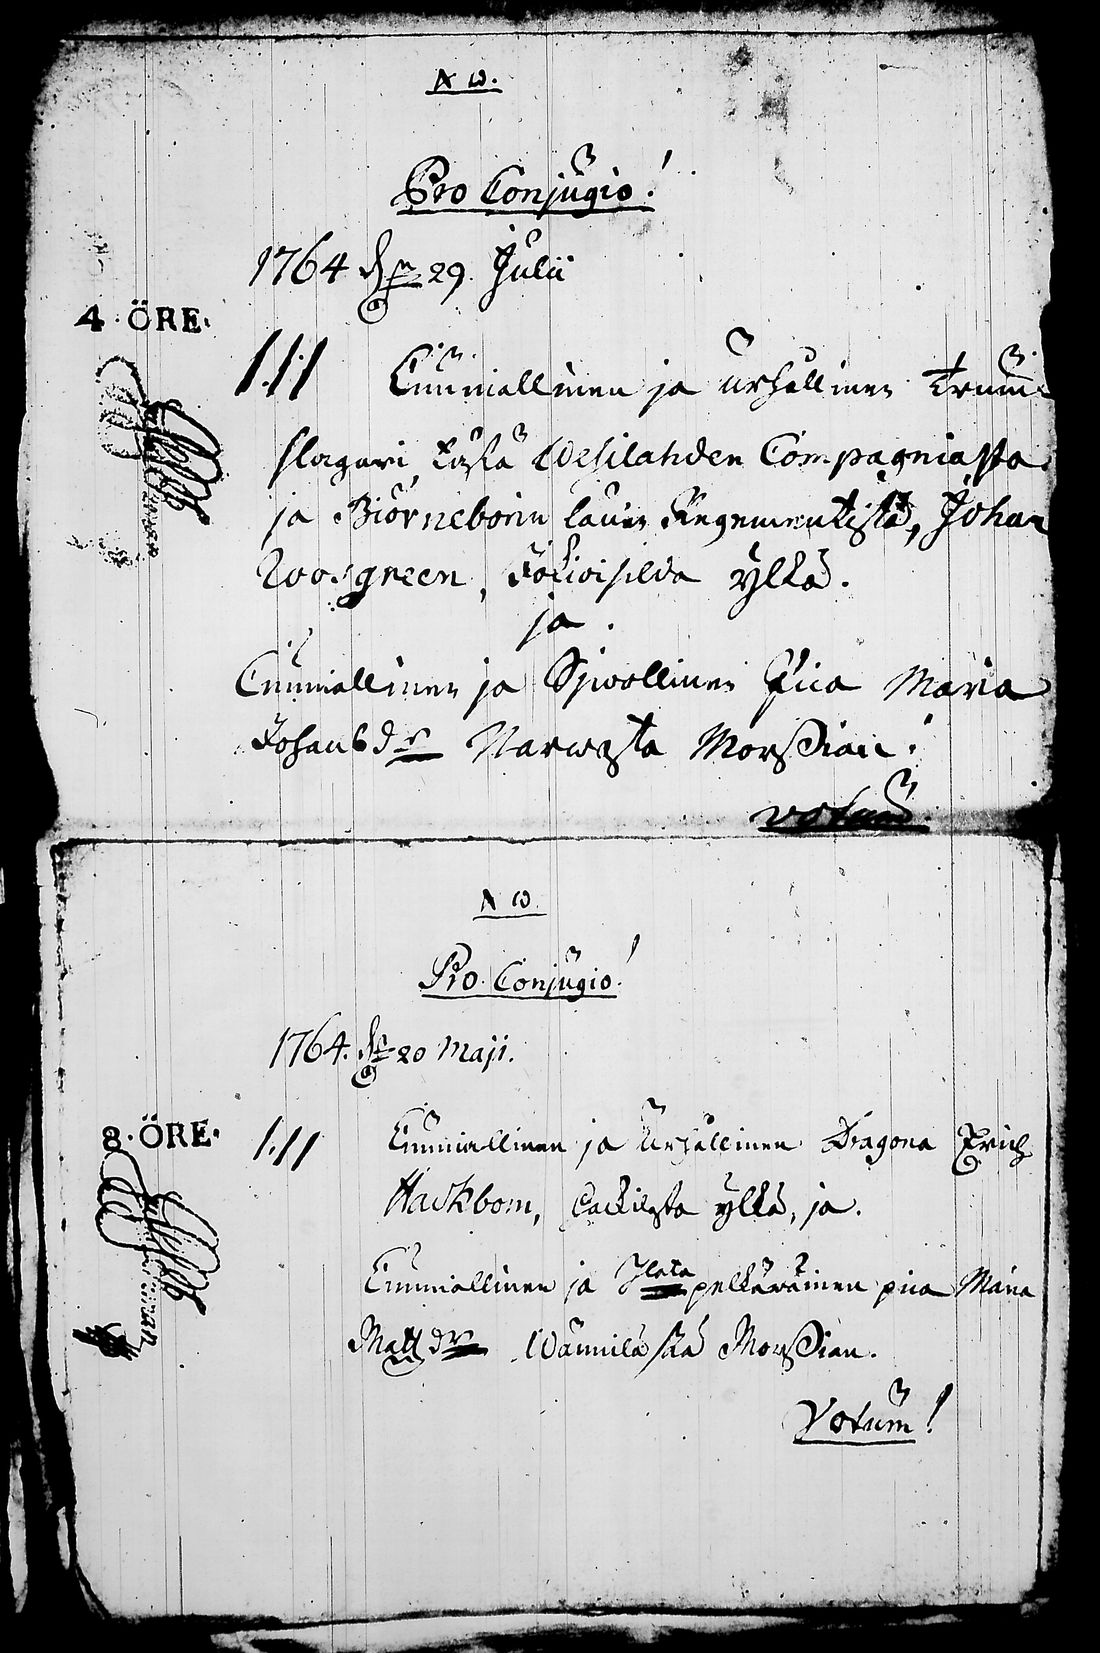 A ω.
Pro Conjugio!
1764 d. 29. Julii
4·ÖRE·
1.11 Cunniallinen ja urhallinen Trum-
slagari tästä Wesilahden Compagniasta
ja Biörneborin länin Regementistä, Johan
Roosgreen, Jokioisilda ylkä.
ja.
Cunniallinen ja Sjwollinen Pica Maria
Johansdr Narwasta Morsian.
Votum.
A ω.
Pro Conjugio!
1764. d. 20 Maji.
8·ÖRE·
1.11 Cunniallinen ja Urhallinen Dragona Erich
Hackbom, ylkä, ja.
Cunniallinen ja pica Maria
Mattdr Wännilästä Morsian.
Votum!